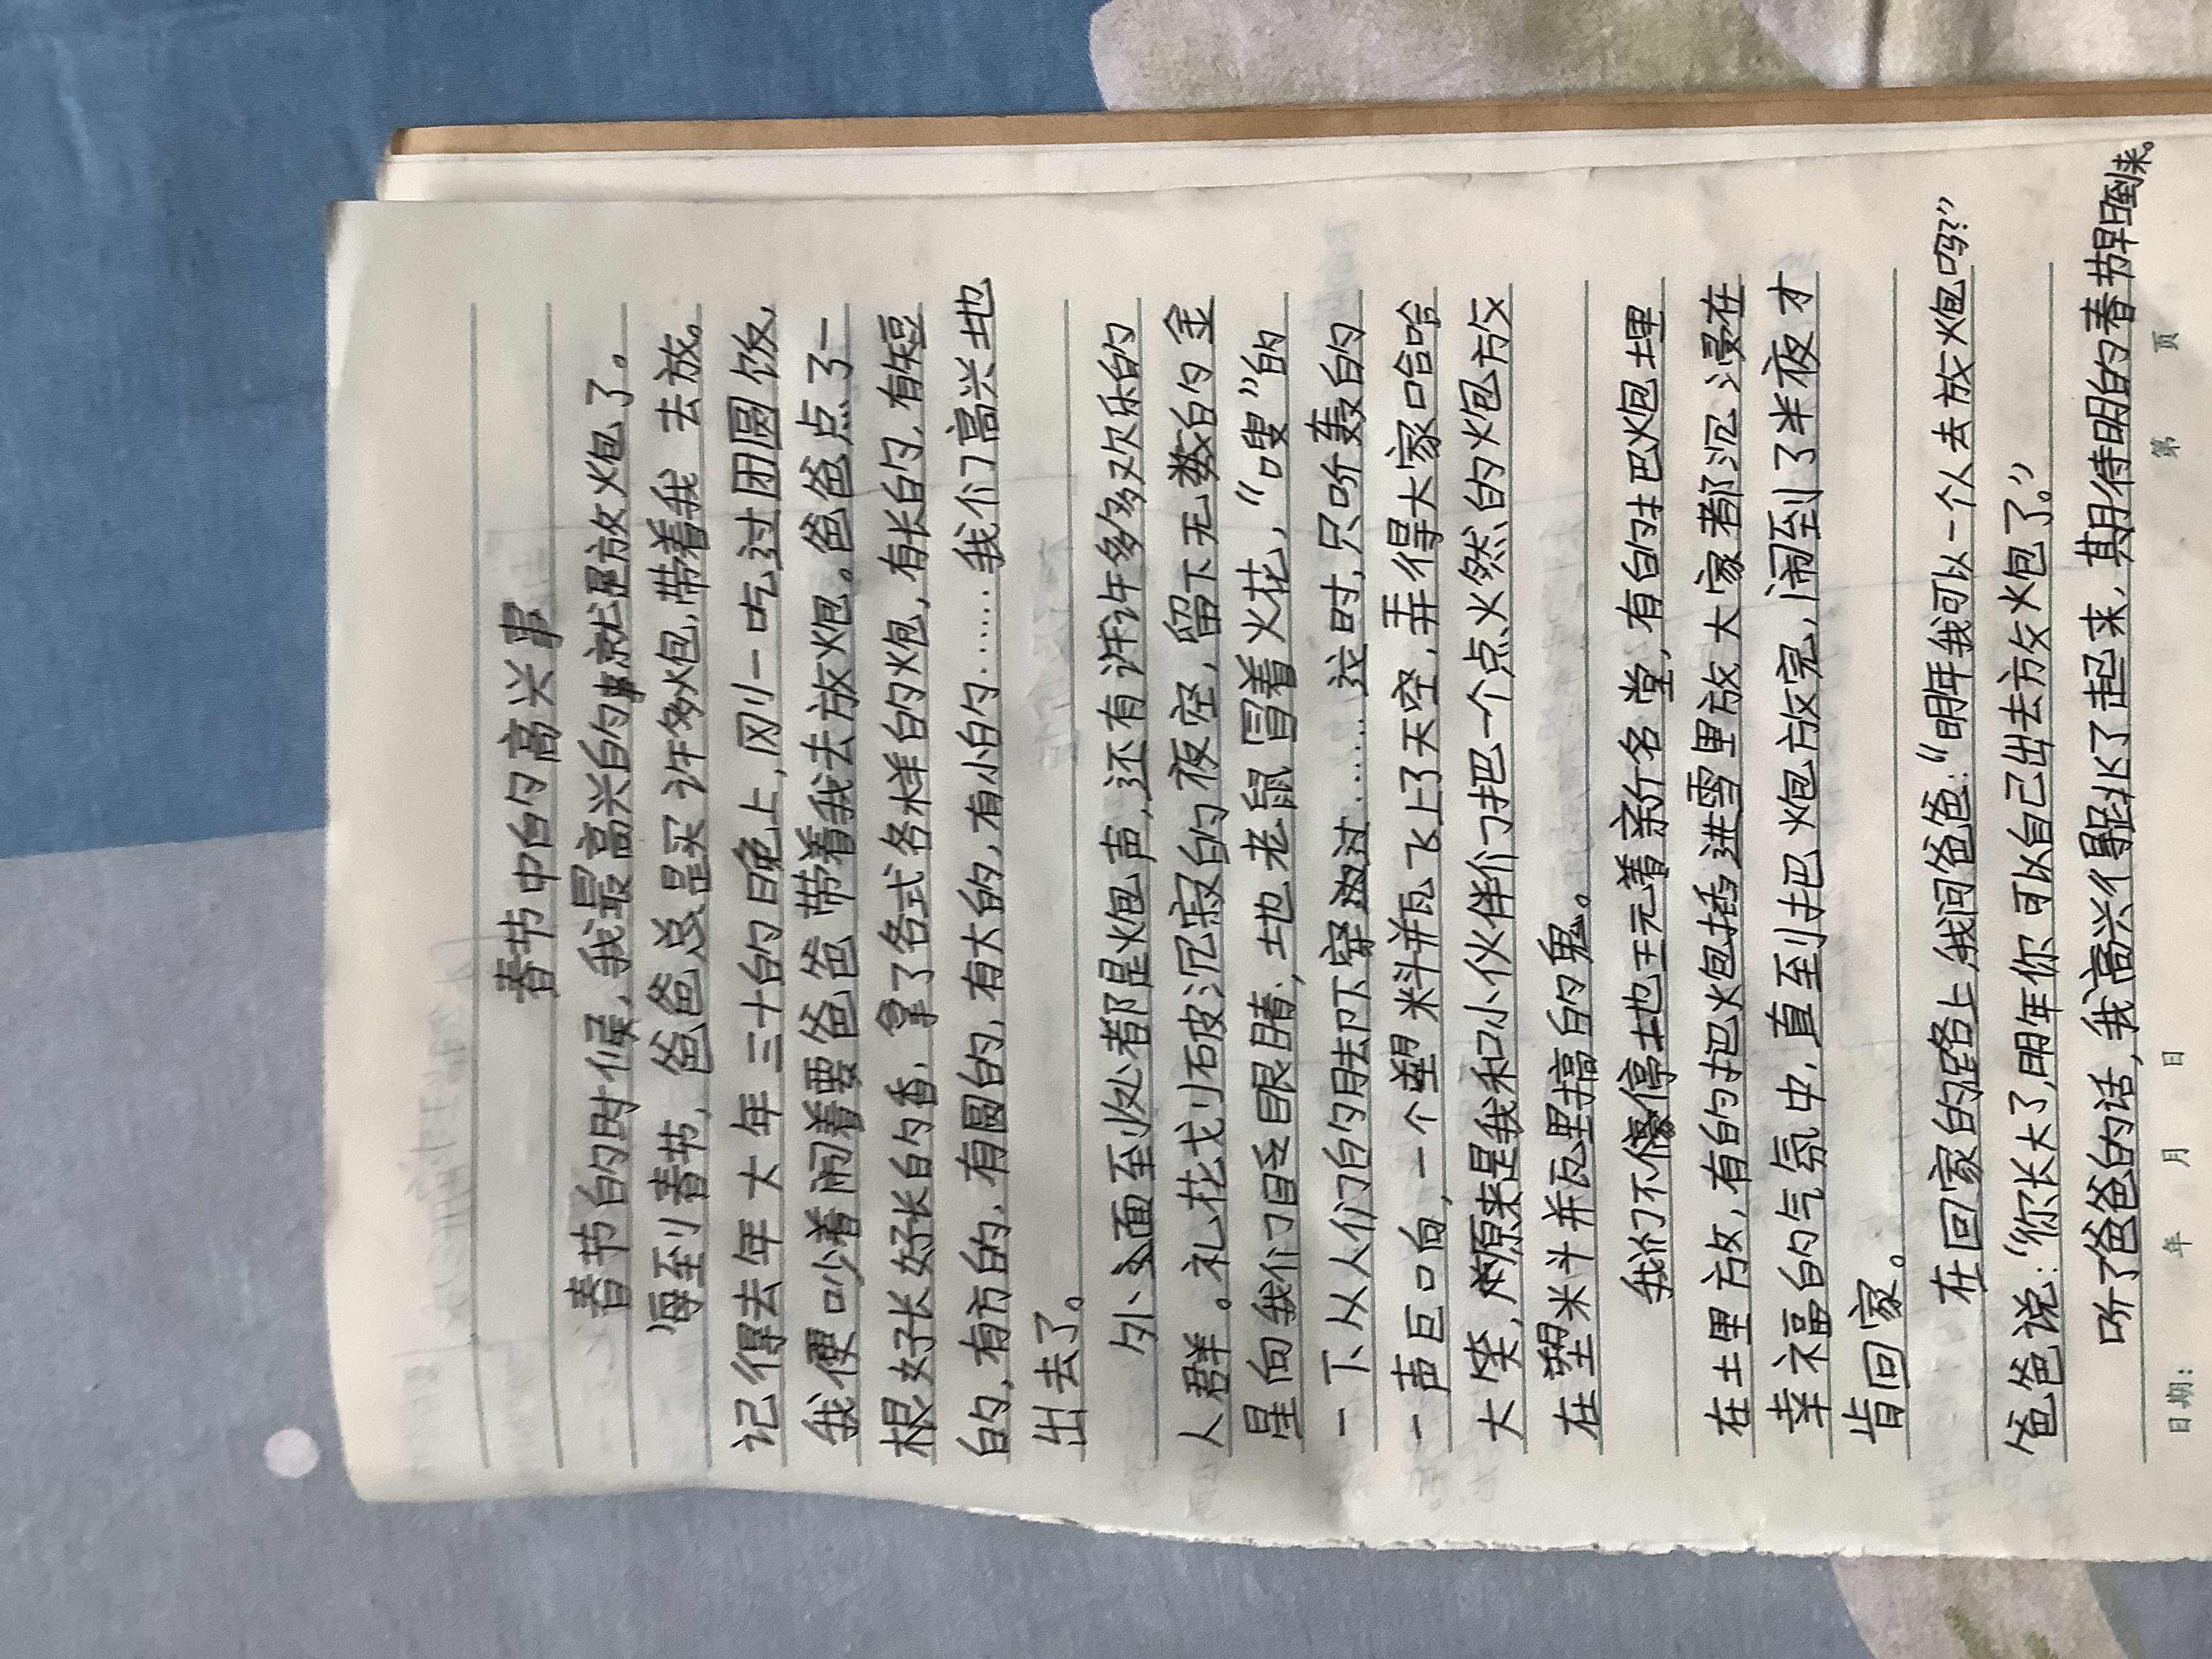 春节中的高兴事
春节的时候,我最高兴的就是放火炮了。
每到春节,爸爸总是买许多火炮,带着我去放。
记得去年大年三十的晚上,刚一吃过团圆饭,
我便吵着闹着要爸爸带着我去放火炮。爸爸点了一
根好长好长的香,拿了各式各样的火炮,有长的,有短
的,有方的,有圆的,有大的,有小的……我们高兴地
出去了。
外面到处都是火炮声,还有许许多多欢乐的
人群。礼花划破沉寂的夜空,留下无数的金
星向我们眨眼睛;地老鼠冒着火花,“嗖”的
一下从人们的胯下穿过……这时,只听轰的
一声巨响,一个塑料瓶飞上了天空,弄得大家哈哈
大笑,原来是我和小伙伴们把一个点火然的火炮放
在塑料瓶里搞的鬼。
我们不停地玩着新名堂,有的把火炮埋
在土里放,有的把火炮插进雪里放,大家都沉浸在
幸福的气氛中,直到把火炮放完,闹到了半夜才
肯回家。
在回家的路上,我问爸爸:“明年我可以一个人去放火炮吗?”
爸爸说:“你长大了,明年你可以自己出去放火炮了。”
听了爸爸的话,我高兴得跳了起来,期待明的春节早日到来。
日期: 年 月 日 第 页